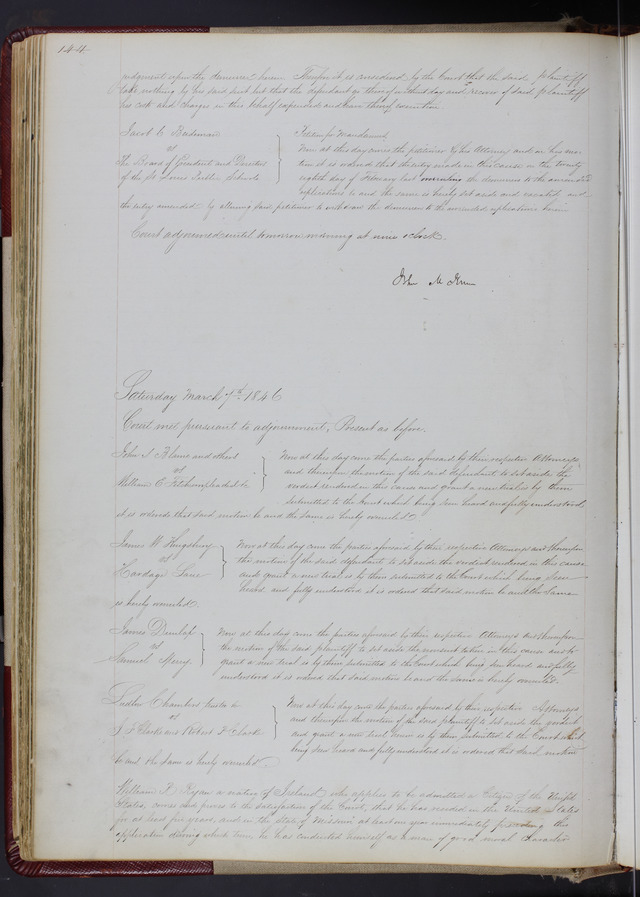 144
judgment upon the demurrer herein. Therefore it is considered by the Court that the said plaintiff
take nothing by his said suit but that the defendant go thereof without day and recover of said plaintiff
his costs and charges in this behalf expended and have thereof execution.
Jacob C. Bademan
vs
The Board of President and Directors
of the St Louis Public Schools
Petition for Mandamus
Now at this day comes the petitioner by his Attorney and on his mo-
tion it is ordered that the entry made in this cause on the twenty
eighth day of February last overruling the demurrer to the amended
replications to and the same is hereby set aside and vacated and
the entry amended by allowing said petitioner to withdraw the demurrer to the amended replications herein
Court adjourned until tomorrow morning at nine o'clock.
John M
Saturday March 7th 1846
Court met pursuant to adjournment, Present as before.
John S. and others
vs
William C.
Now at this day come the parties aforesaid by their respective Attorneys
and thereupon the motion of the said defendant to set aside the
verdict rendered in this cause and grant a new trial is by them
submitted to the Court which being seen heard and fully understood,
it is ordered that said motion be and the same is hereby overruled.
James W. Kingsbury
vs
Lane
Now at this day come the parties aforesaid by their respective Attorneys and thereupon
the motion of the said defendant to set aside the verdict rendered in this cause
and grant a new trial is by them submitted to the Court which being seen
heard and fully understood it is ordered that said motion be and the same
is hereby overruled.
James Dunlap
vs
Samuel Merry.
Now at this day come the parties aforesaid by their respective Attorneys and thereupon
the motion of the said plaintiff to set aside the nonsuit taken in this cause and to
grant a new trial is by them submitted to the Court which being seen heard and fully
understood it is ordered that said motion be and the same is hereby overruled.
Chambers
vs
J F Clark and Robert F Clark
Now at this day come the parties aforesaid by their respective Attorneys
and thereupon the motion of the said plaintiff to set aside the verdict
and grant a new trial herein is by them submitted to the Court which
being seen heard and fully understood it is ordered that said motion
be and the same is hereby overruled.
William F. Ryan a native of Ireland who applies to be admitted a Citizen of the United
States, comes and proves to the satisfaction of the Court, that he has resided in the United States
for at least five years, and in the State of Missouri at least one year immediately preceding this
application during which time he has conducted himself as a man of good moral character